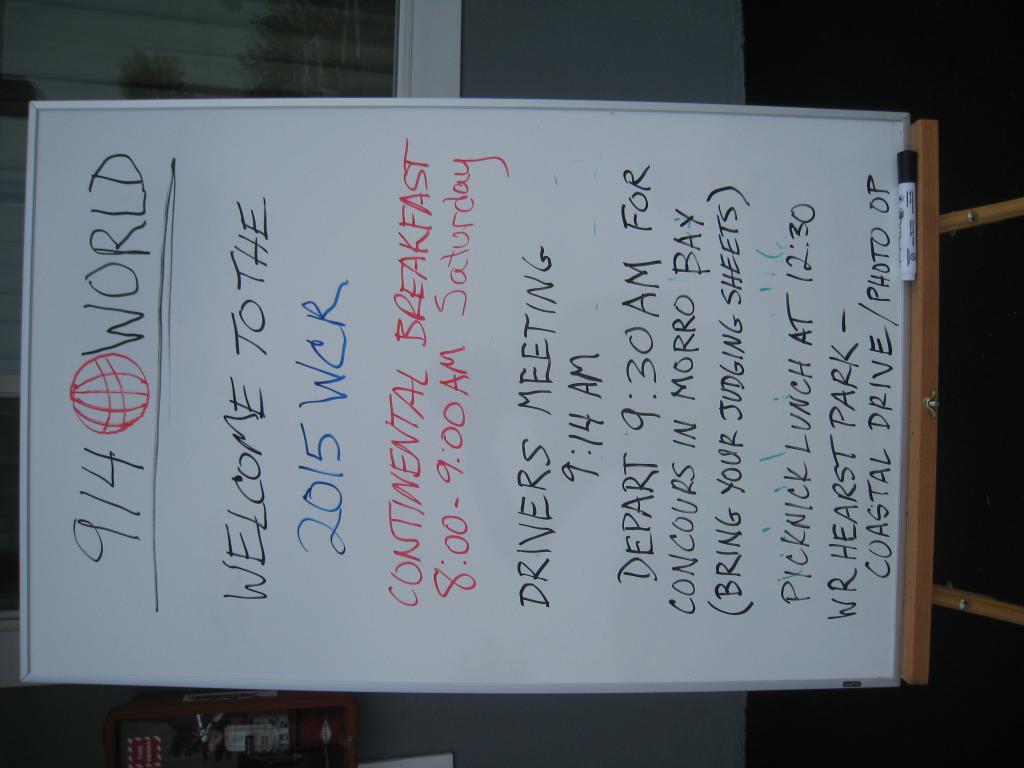 914 WORLD
WELCOME TO THE
2015 WCR
CONTINENTAL BREAKFAST
8:00-9:00AM Saturday
DRIVERS MEETING
9:14 AM
DEPART 9:30AM FOR
CONCOURS IN MORRO BAY
(BRING YOUR JUDGING SHEETS)
PICKNICK LUNCH AT 12:30
WR HEARST PARK -
COASTAL DRIVE/PHOTO OP